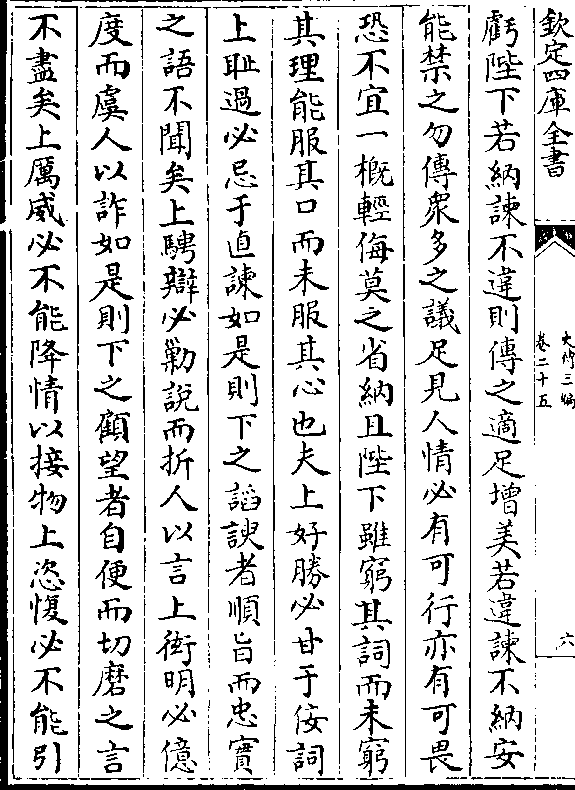 欽定四庫全書
文編
卷二十五
六
虧陛下若納諫不違則傳之適足增美若違諫不納安
能禁之勿傳衆多之議足見人情必有可行亦有可畏
恐不宜一概輕侮莫之省納且陛下雖窮其詞而未窮
其理能服其口而未服其心也夫上好勝必甘于佞詞
上耻過必忌于直諫如是則下之謟諛者順旨而忠實
之語不聞矣上騁辯必勦説而折人以言上衒明必億
度而虞人以詐如是則下之顧望者自便而切磨之言
不盡矣上厲威必不能降情以接物上恣愎必不能引